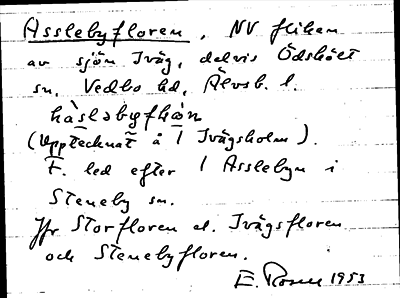 Asslebyfloren, NV fliken
av sjön Iväg, delvis Ödskölt
sn. Vedbo hd, Älvsb. l.
(Upptecknat å 1 Ivägsholm).
F. led efter 1 Assleby i
Steneby sn.
Jfr Storfloren el. Ivägsfloren
och Stenebyfloren.
E. Rosen 1953